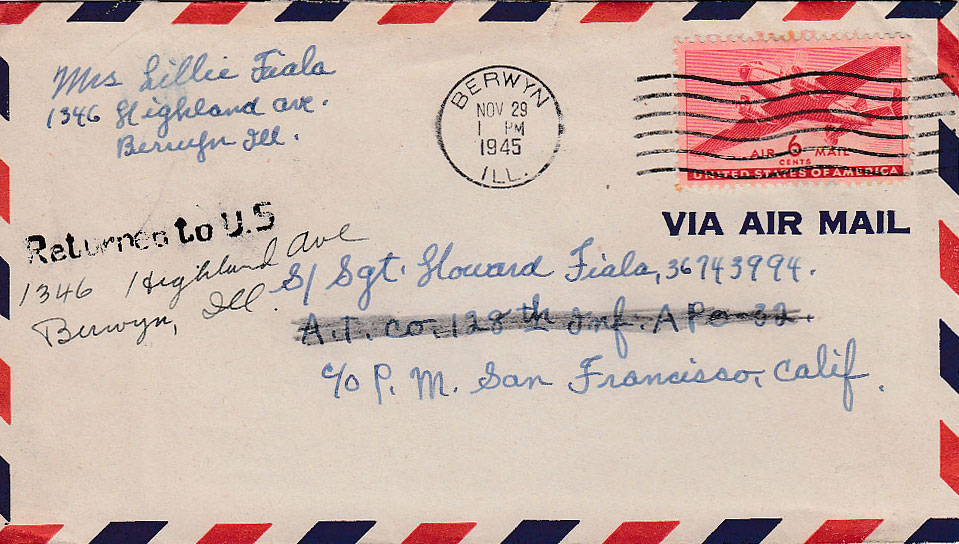 Mrs Lillie Fiala
1346 Highland Ave.
Berwyn Ill.
BERWYN
NOV 29
1 PM
1945
ILL.
AIR 6 MAIL
CENTS
UNITED STATES OF AMERICA
VIA AIR MAIL
Returned to U.S
1346 Highland Ave
Berwyn, Ill.
S/Sgt. Howard Fiala, 36743994.
A.T. Co. 128th Inf. APO 32.
c/o P. M. San Francisco, Calif.